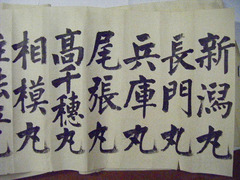 新潟丸
長門丸
兵庫丸
尾張丸
高千穂丸
相模丸